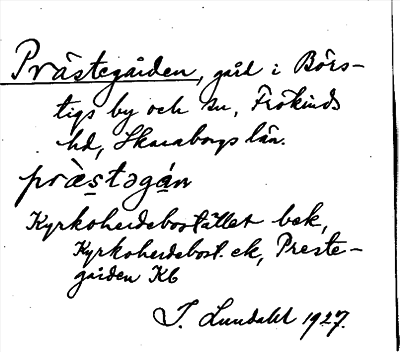 Prästegården, gård i Börs-
tigs by och sn, Frökinds
hd, Skaraborgs län.
prästəgán
Kyrkoherdebostället bek,
Kyrkoherdebost. ek, Preste-
gården Kb
I. Lundahl 1927.